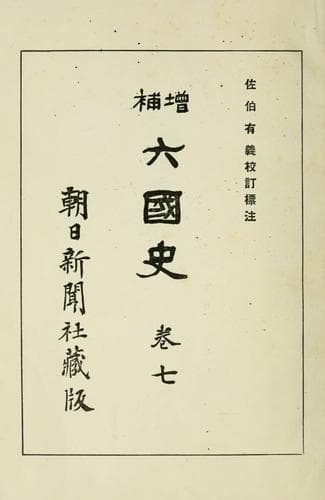 佐伯有義校訂標注
增補
六國史
卷七
朝日新聞社藏版